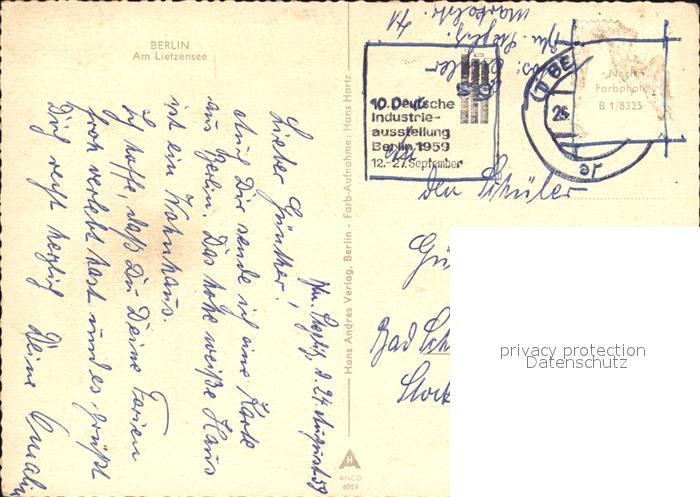 BERLIN
Am Lietzensee
Bln. Steglitz, d. 24. August 59
Lieber Günther!
Auch Dir sende ich eine Karte
aus Berlin. Das hohe weiße Haus
ist ein Wohnhaus.
Ich hoffe, daß Du Deine Ferien
froh verlebt hast und es grüßt
Dich recht herzlich Deine
Hans Andres Verlag, Berlin - Farb-Aufnahme: Hans Hartz
ANCO
6059
10. Deutsche
Industrie-
ausstellung
Berlin 1959
12.-27. September
BE
25.
Nach
Farbphoto
B 1/8325
den Schüler
Bad
privacy protection
Datenschutz